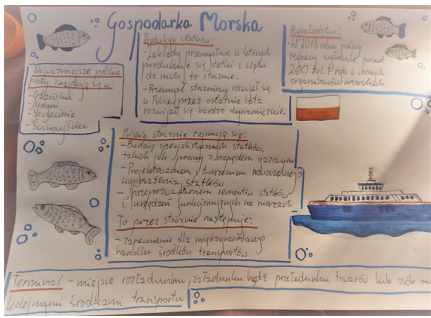 Gospodarka Morska
Produkcja statków:
- Zakłady przemysłowe w których
produkuje się statki i służy
do nich, to stocznie.
- Przemysł stoczniowy rozwijał się
w Polsce przez ostatnie lata
rozwijał się bardzo dynamicznie.
Rybołówstwo:
- W 2018 roku polscy
rybacy wyłowili ponad
200 tys. t ryb i innych
organizmów morskich
Najważniejsze polskie
porty znajdują się w:
- Gdańsku
- Gdyni
- Szczecinie
- Świnoujściu
Polskie stocznie zajmują się:
- Budową specjalistycznych statków,
takich jak promy z napędem gazowym
- Projektowaniem i tworzeniem nowoczesnego
wyposażenia statków
- przeprowadzaniem remontów statków
i urządzeń funkcjonujących na morzach
To przez stocznie następuje:
- zapewnienie dla międzynarodowego
handlu środków transportów
Terminal - miejsce rozładunku, załadunku bądź przeładunku towarów lub osób
kolejnymi środkami transportu